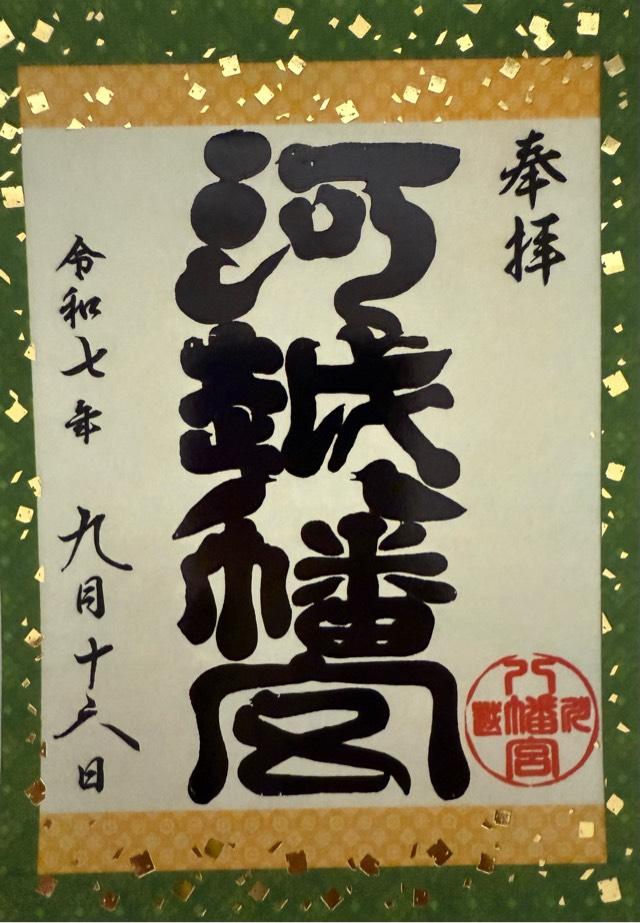 奉拝
河越八幡宮
八幡宮
令和七年 九月十六日